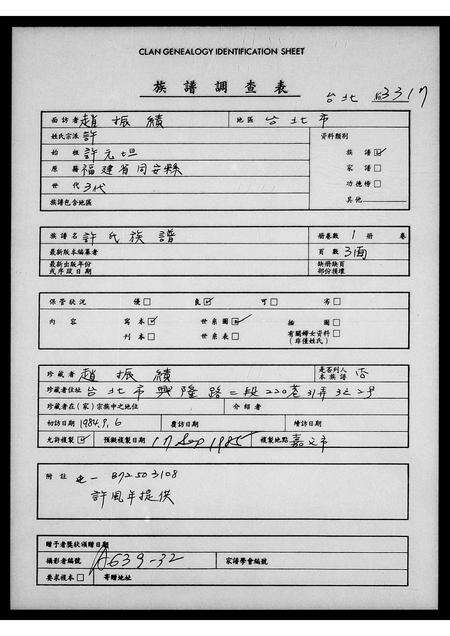 CLAN GENEALOGY IDENTIFICATION SHEET
族譜調查表
台北 3317
面訪者 趙振績 地區 台北市
姓氏宗派 許 資料類別
始祖 許元坦 族譜☑
原籍 福建省同安縣 家譜□
世代 3代 功德榜□
族譜包含地區 其他
族譜名 許氏族譜 冊卷數 1 冊 卷
最新版本編纂者 頁數 3面
最新出版年份或序跋日期 缺冊缺頁部份損壞
保管狀況 優□ 良☑ 可□ 劣□
內容 寫本☑ 世系圖☑ 插圖□
刊本□ 世系表□ 有關婦女資料□(非僅姓氏)
珍藏者 趙振績 是否列入本族譜 否
珍藏者住址 台北市興隆路二段220巷31弄3之2号
珍藏者在(家)宗族中之地位 介紹者
初訪日期 1984.9.6 覆訪日期 續訪日期
允許複製☑ 預擬複製日期 17 Sep 1985 複製地點 嘉文市
附註 872503108
許風年提供
贈予者獎狀頒贈日期
攝影者編號 A639-32 家譜學會編號
要求複本□ 寄贈地址